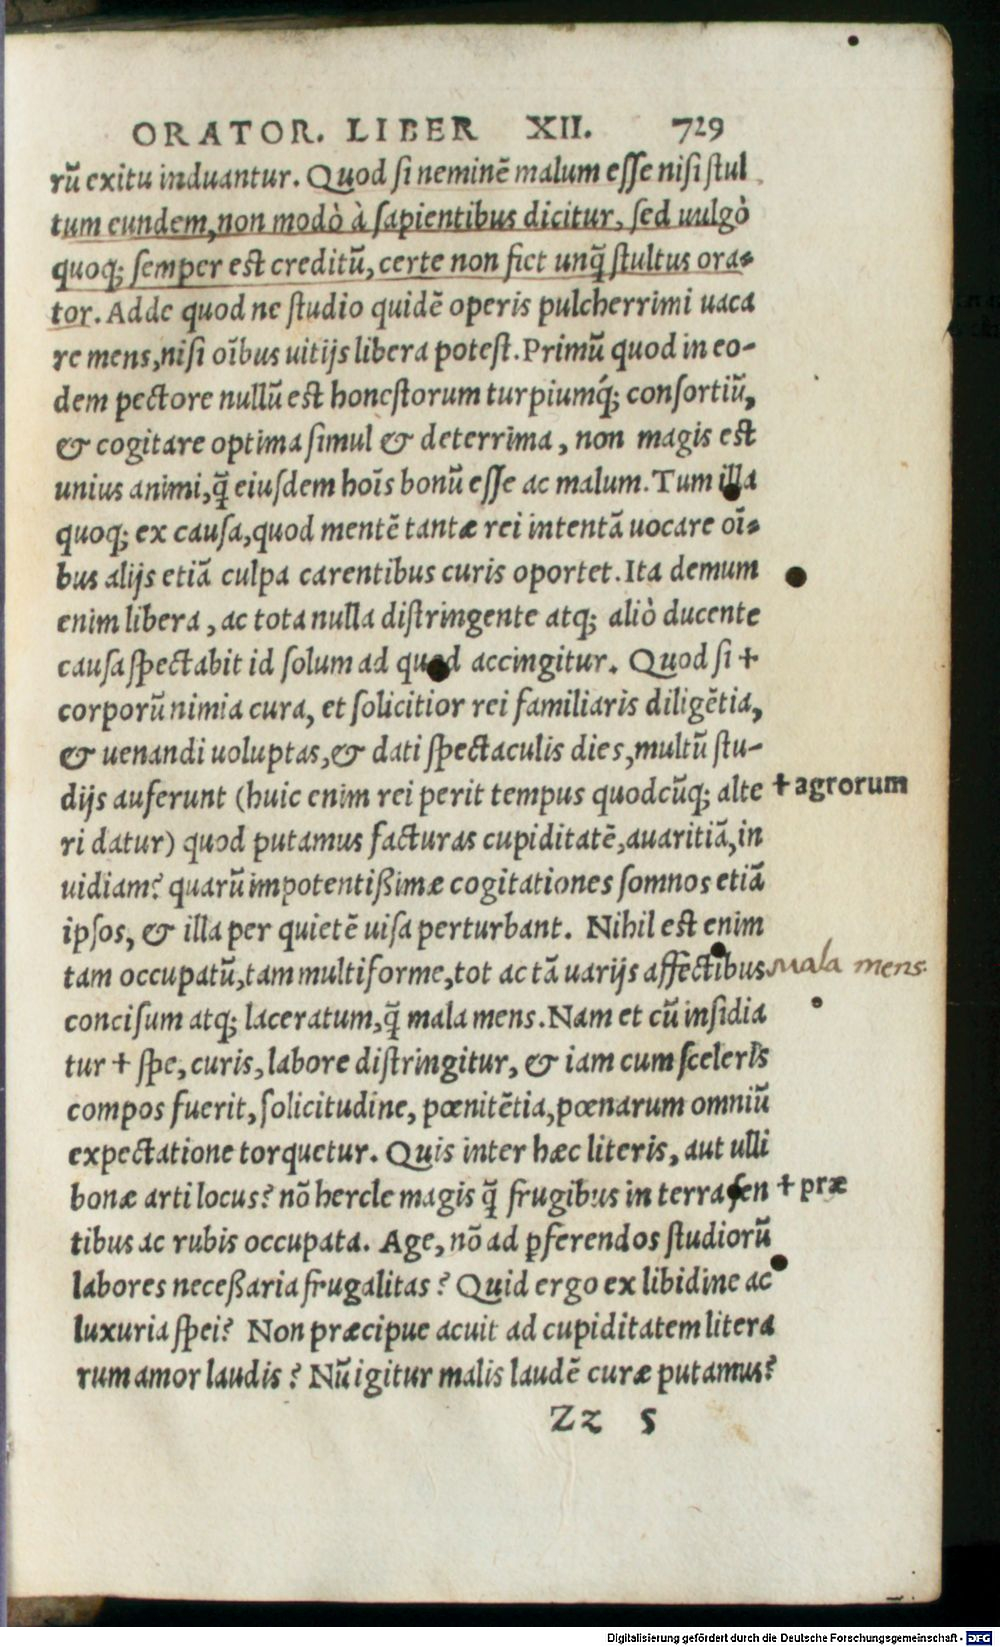 ORATOR. LIBER XII. 729
rū exitu induantur. Quod ſi neminē malum eſſe niſi ſtul
tum eundem, non modò à ſapientibus dicitur, ſed uulgò
quoq; ſemper eſt creditū, certe non fiet unq̄ ſtultus ora-
tor. Adde quod ne ſtudio quidē operis pulcherrimi uaca
re mens, niſi oībus uitijs libera poteſt. Primū quod in eo-
dem pectore nullū eſt honeſtorum turpiumq́; conſortiū,
& cogitare optima ſimul & deterrima, non magis eſt
unius animi, q̄ eiuſdem hoīs bonū eſſe ac malum. Tum illa
quoq; ex cauſa, quod mentē tantæ rei intentā uocare oī-
bus alijs etiā culpa carentibus curis oportet. Ita demum
enim libera, ac tota nulla diſtringente atq; aliò ducente
cauſa ſpectabit id ſolum ad quod accingitur. Quod ſi +
corporū nimia cura, et ſolicitior rei familiaris diligētia,
& uenandi uoluptas, & dati ſpectaculis dies, multū ſtu-
dijs auferunt (huic enim rei perit tempus quodcūq; alte + agrorum
ri datur) quod putamus facturas cupiditatē, auaritiā, in
uidiam? quarū impotentißimæ cogitationes ſomnos etiā
ipſos, & illa per quietē uiſa perturbant. Nihil eſt enim
tam occupatū, tam multiforme, tot ac tā uarijs affectibus mala mens.
conciſum atq; laceratum, q̄ mala mens. Nam et cū inſidia
tur + ſpe, curis, labore diſtringitur, & iam cum ſceleris
compos fuerit, ſolicitudine, pœnitētia, pœnarum omniū
expectatione torquetur. Quis inter hæc literis, aut ulli
bonæ arti locus? nō hercle magis q̄ frugibus in terra ſen + præ
tibus ac rubis occupata. Age, nō ad ꝑferendos ſtudiorū
labores neceßaria frugalitas? Quid ergo ex libidine ac
luxuria ſpei? Non præcipue acuit ad cupiditatem litera
rum amor laudis? Nū igitur malis laudē curæ putamus?
Zz 5
Digitalisierung gefördert durch die Deutsche Forschungsgemeinschaft - DFG